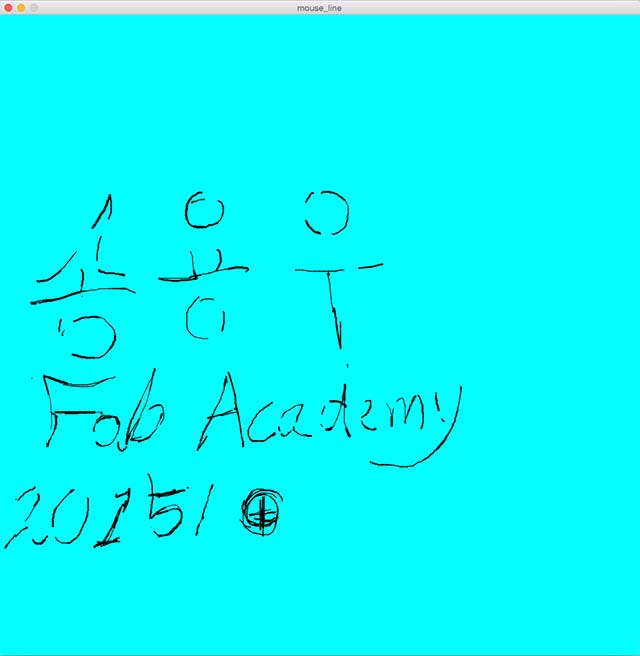 mouse_line
송용우
Fab Academy
2015 /